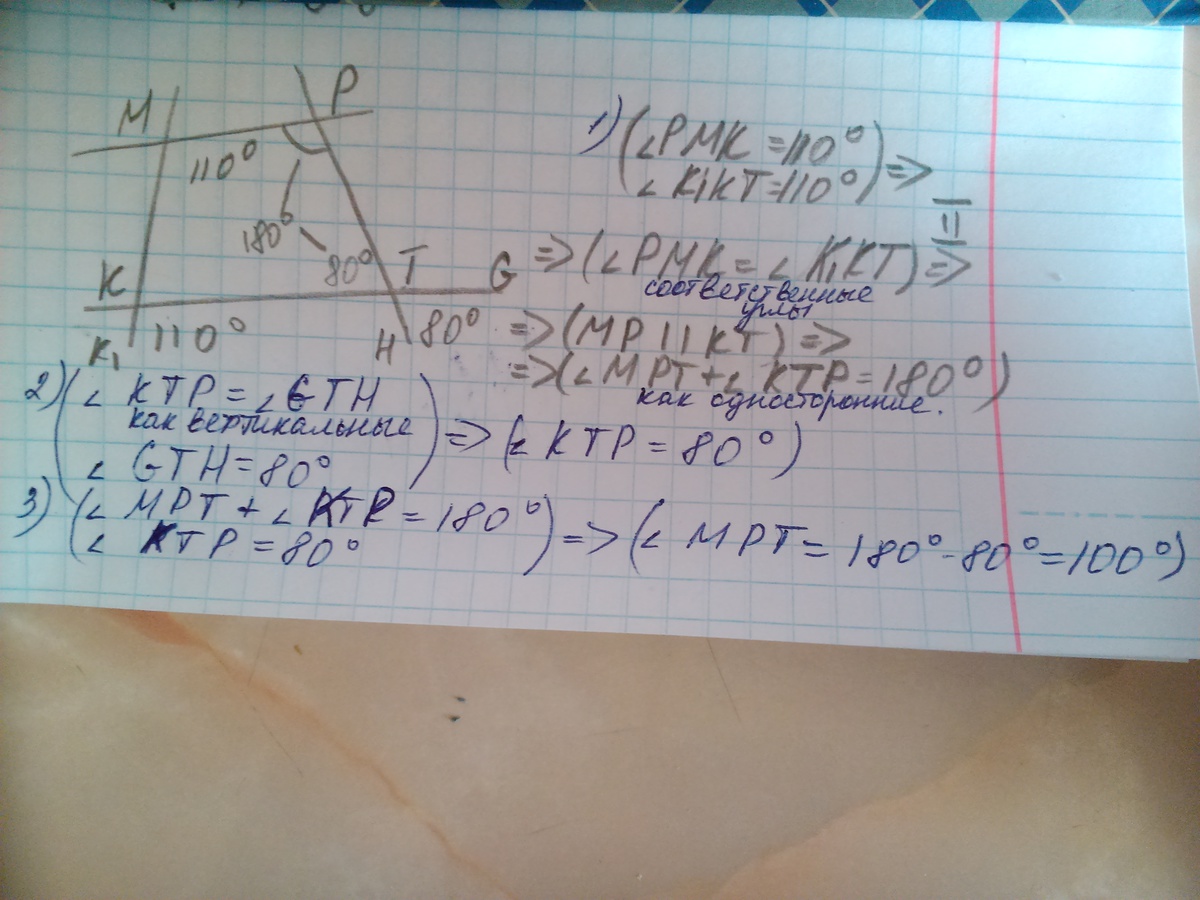 M
P
110°
180°
80°
T
G
K
K₁
110°
H
80°
1) (∠PMK = 110°
∠K₁KT = 110°) =>
=> (∠PMK = ∠K₁KT) =>
соответственные
углы
=> (MP || KT) =>
=> (∠MPT + ∠KTP = 180°)
как односторонние.
2) (∠KTP = ∠GTH
как вертикальные
∠GTH = 80°) => (∠KTP = 80°)
3) (∠MPT + ∠KTP = 180°
∠KTP = 80°) => (∠MPT = 180° - 80° = 100°)